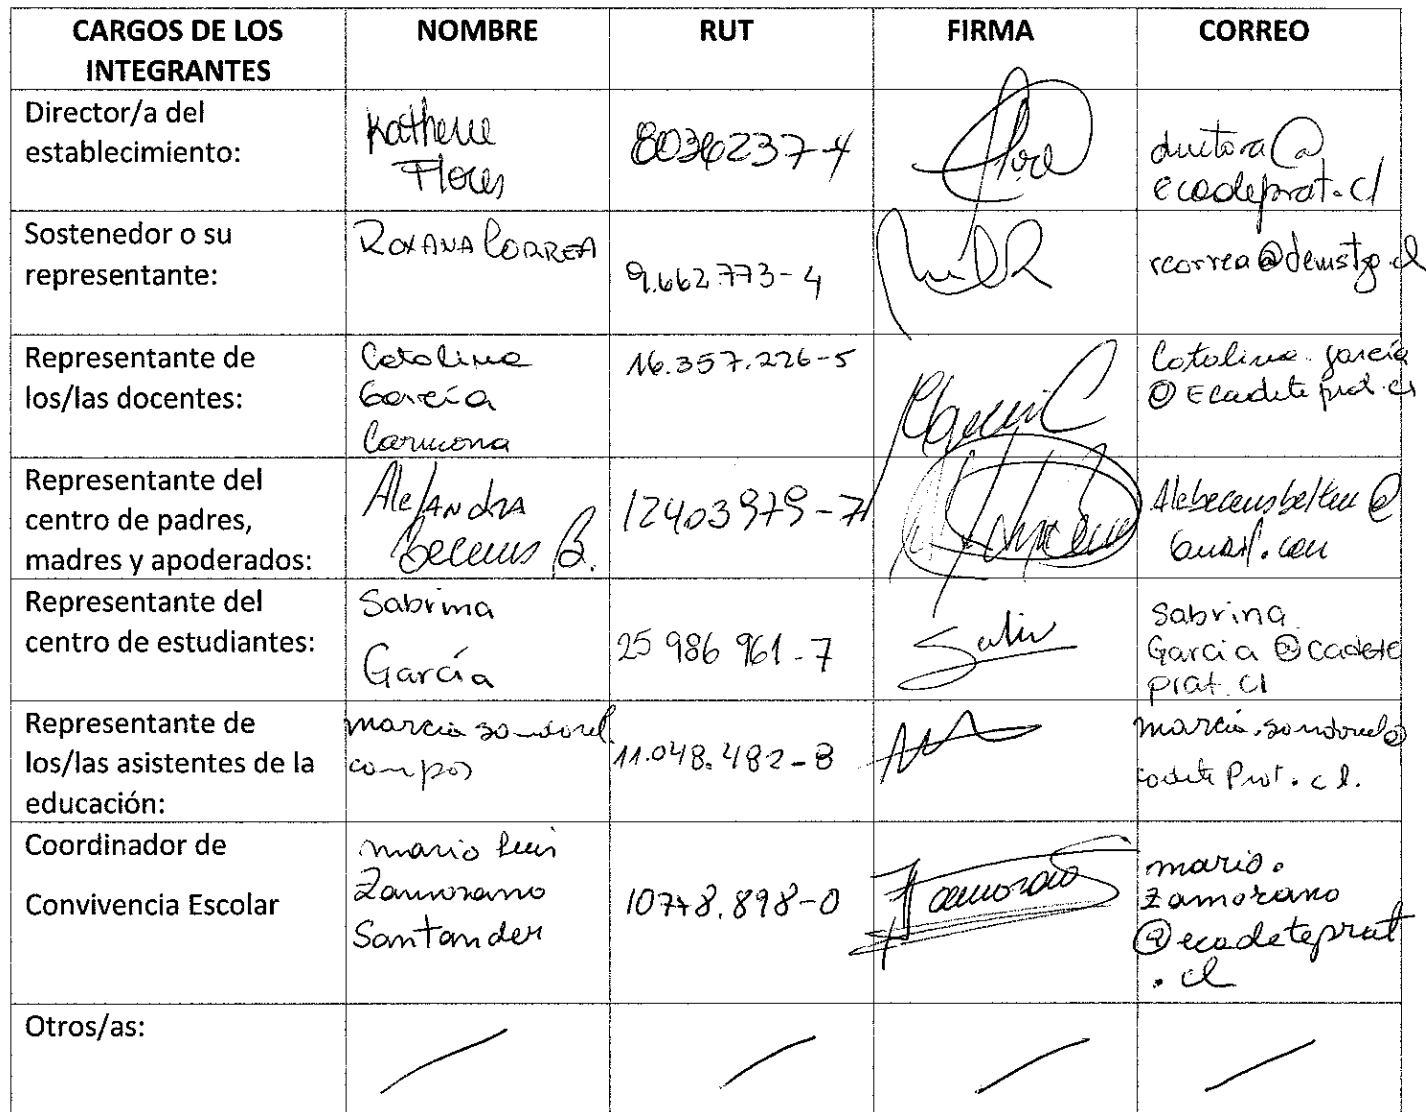 CARGOS DE LOS INTEGRANTES NOMBRE RUT FIRMA CORREO
Director/a del establecimiento:
Katherine
Flores
8036237-4
ecadeprat.cl
Sostenedor o su representante:
ROXANA CORREA
9.662.773-4
rcorrea@demstgo.cl
Representante de los/las docentes:
Catalina
García
Carmona
16.357.226-5
Catalina.garcía
@Ecadeteprat.cl
Representante del centro de padres, madres y apoderados:
Alejandra
Becerus B.
12403979-7
Gmail.com
Representante del centro de estudiantes:
Sabrina
García
25 986 961-7
Sabrina
Garcia @cadete
prat.cl
Representante de los/las asistentes de la educación:
marcia sandoval
campos
11.048.482-8
marcia.sandoval@
cadete Prat.cl.
Coordinador de
Convivencia Escolar
mario Luis
Zamorano
Santander
10778.898-0
Zamorano
mario.
Zamorano
@ecadeteprat
.cl
Otros/as: